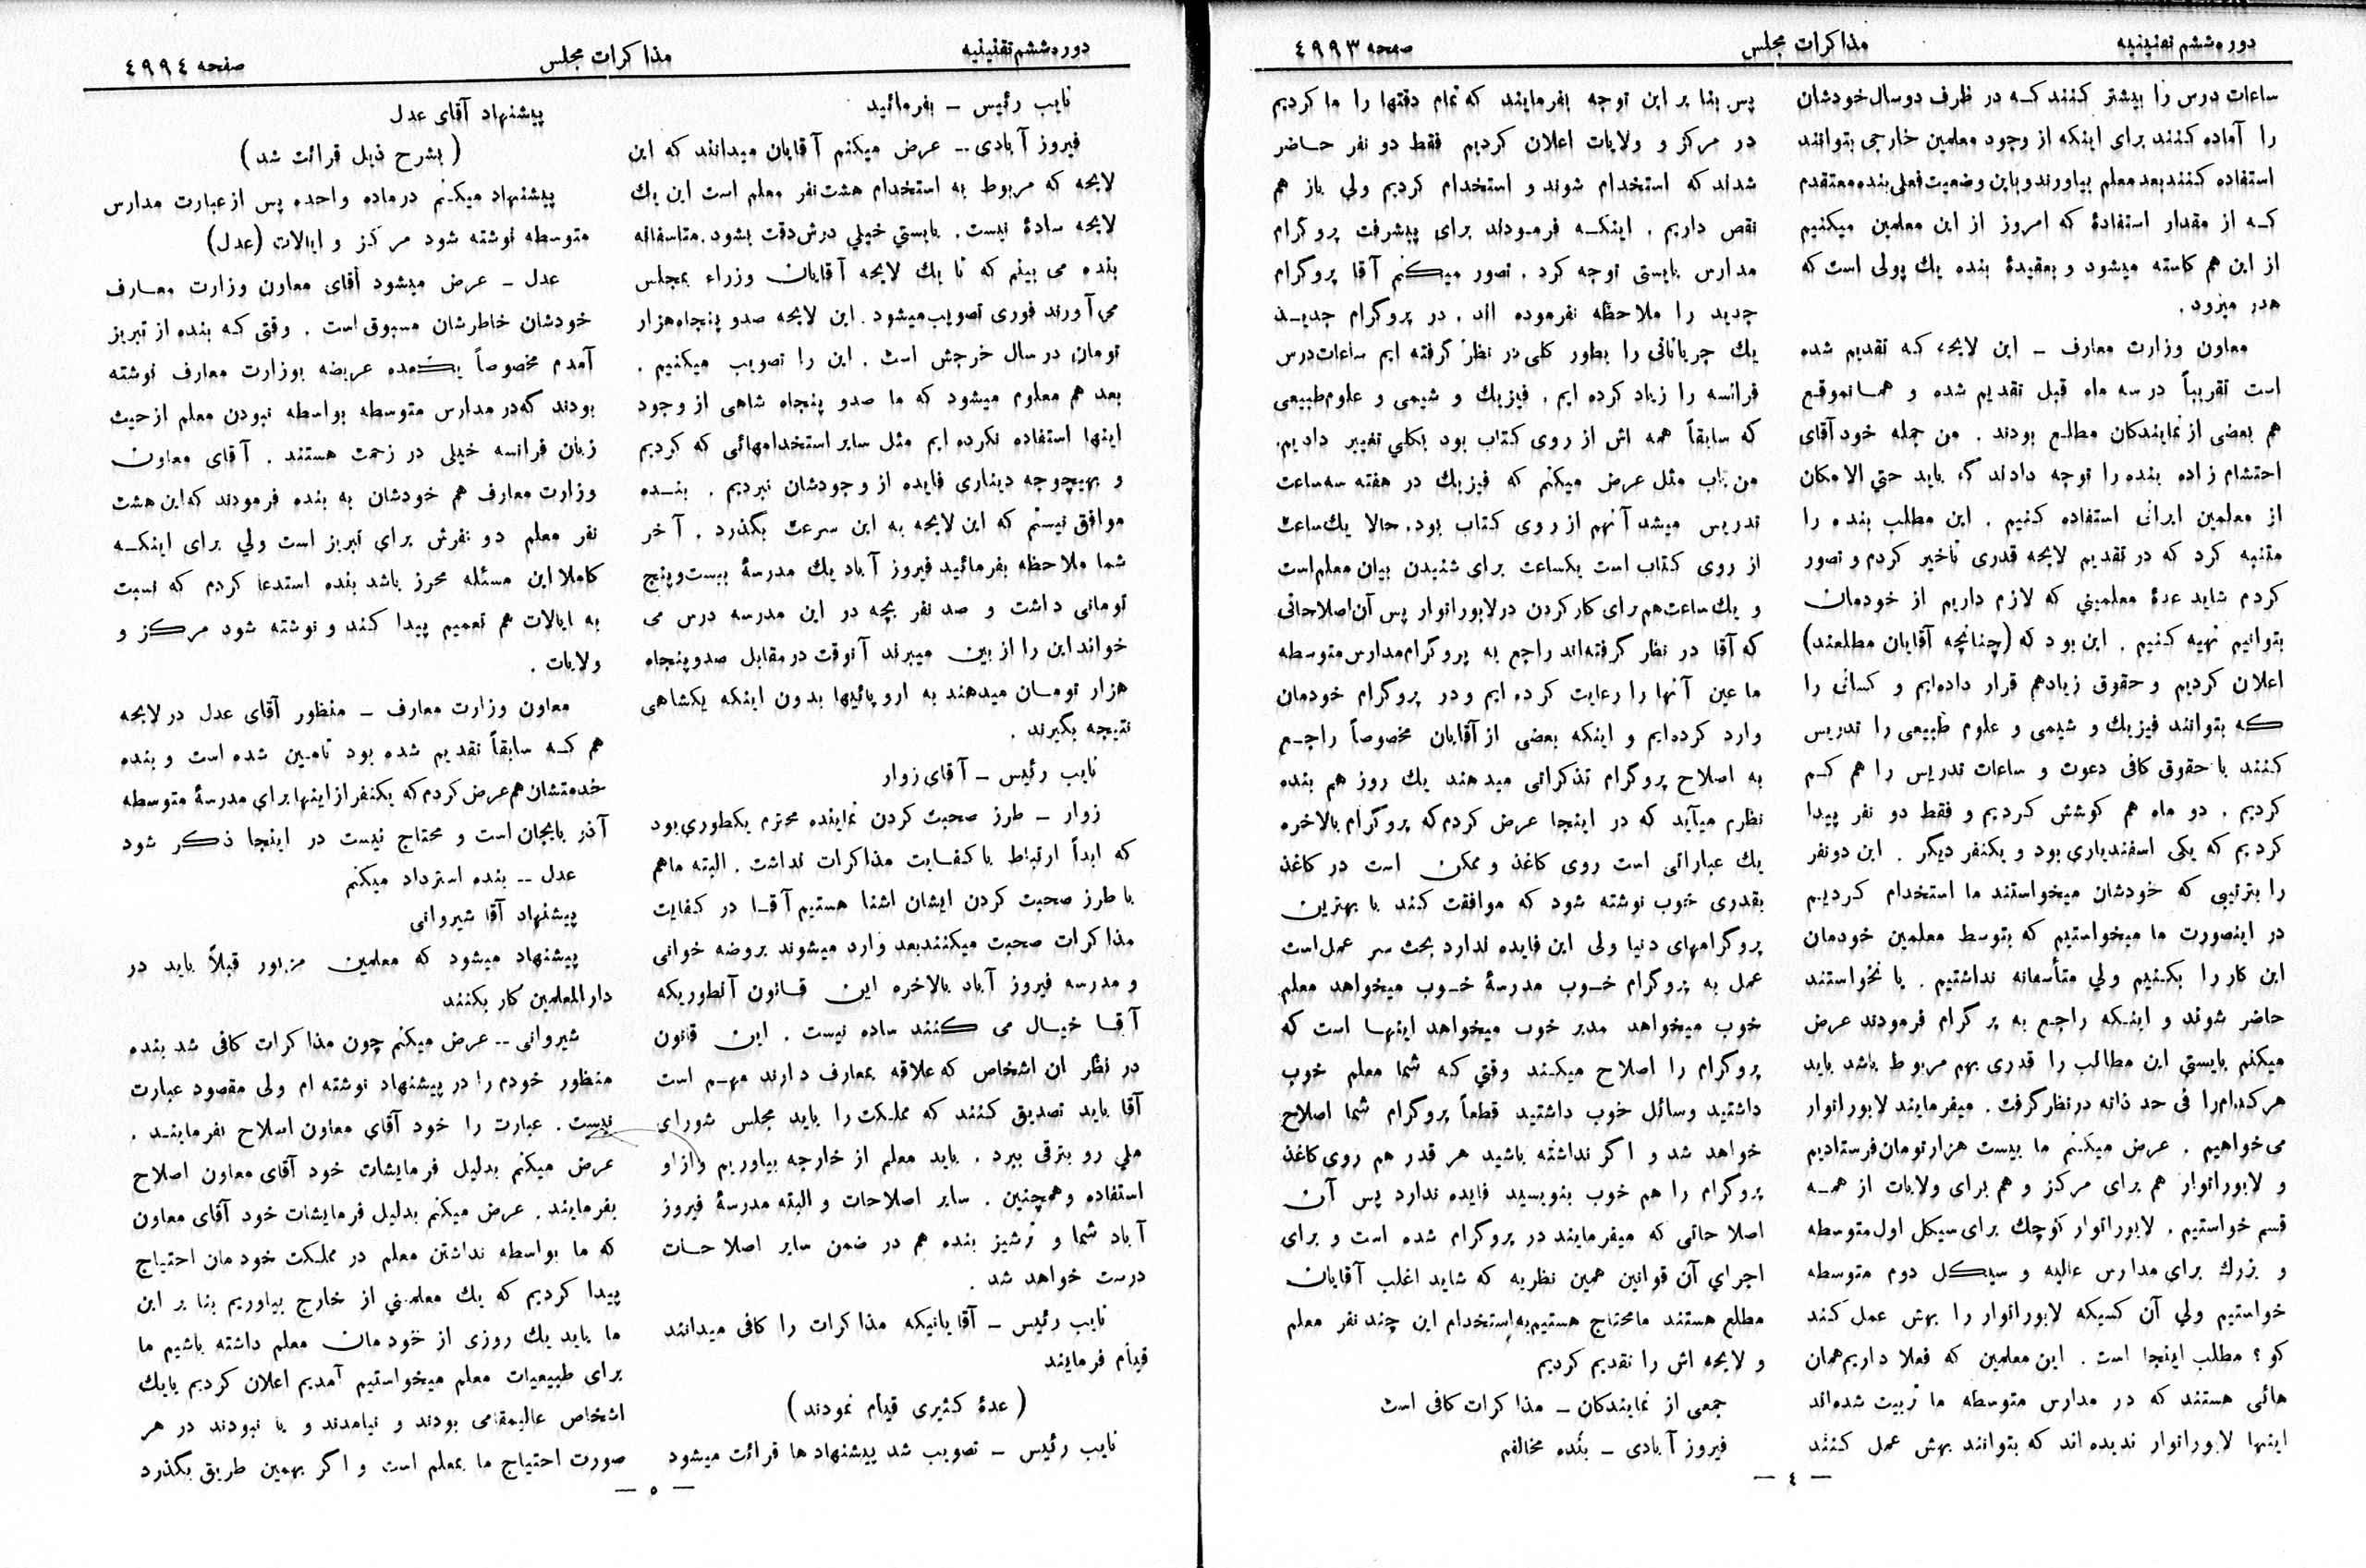 دوره ششم تقنینیه
مذاکرات مجلس
صفحه ٤٩٩٣
ساعات درس را بیشتر کنند که در ظرف دو سال خودشان
را آماده کنند برای اینکه از وجود معلمین خارجی بتوانند
استفاده کنند بعد معلم بیاورند و باین وضعیت فعلی بنده معتقدم
که از مقدار استفادهٔ که امروز از این معلمین میکنیم
از این هم کاسته میشود و بعقیدهٔ بنده یك پولی است که
هدر میرود.
معاون وزارت معارف ـ این لایحه که تقدیم شده
است تقریباً در سه ماه قبل تقدیم شده و همانموقع
هم بعضی از نمایندکان مطلع بودند . من جمله خود آقای
احتشام زاده بنده را توجه دادند که باید حتی الامکان
از معلمین ایرانی استفاده کنیم . این مطلب بنده را
متنبه کرد که در تقدیم لایحه قدری تأخیر کردم و تصور
کردم شاید عدهٔ معلمینی که لازم داریم از خودمان
بتوانیم تهیه کنیم . این بود که (چنانچه آقایان مطلعند)
اعلان کردیم و حقوق زیادهم قرار داده‌ایم و کسانی را
که بتوانند فیزیك و شیمی و علوم طبیعی را تدریس
کنند با حقوق کافی دعوت و ساعات تدریس را هم کم
کردیم . دو ماه هم کوشش کردیم و فقط دو نفر پیدا
کردیم که یکی اسفندیاری بود و یکنفر دیگر . این دو نفر
را بترتیبی که خودشان میخواستند ما استخدام کردیم
در اینصورت ما میخواستیم که بتوسط معلمین خودمان
این کار را بکنیم ولی متأسفانه نداشتیم . یا نخواستند
حاضر شوند و اینکه راجع به پرگرام فرمودند عرض
میکنم بایستی این مطالب را قدری بهم مربوط باشد باید
هر کدام را فی حد ذاته در نظر گرفت . میفرمایند لابورانوار
می‌خواهیم . عرض میکنم ما بیست هزار تومان فرستادیم
و لابورانوار هم برای مرکز و هم برای ولایات از همه
قسم خواستیم . لابورانوار کوچك برای سیکل اول متوسطه
و بزرك برای مدارس عالیه و سیکل دوم متوسطه
خواستیم ولی آن کسیکه لابورانوار را بهش عمل کند
کو؟ مطلب اینجا است . این معلمین که فعلا داریم همان
هائی هستند که در مدارس متوسطه ما تربیت شده‌اند
اینها لابورانوار ندیده اند که بتوانند بهش عمل کنند
پس بنا بر این توجه بفرمایند که تمام دقتها را ما کردیم
در مرکز و ولایات اعلان کردیم فقط دو نفر حاضر
شدند که استخدام شوند و استخدام کردیم ولی باز هم
نقص داریم . اینکه فرمودند برای پیشرفت پروگرام
مدارس بایستی توجه کرد . تصور میکنم آقا پروگرام
جدید را ملاحظه نفرموده اند . در پروگرام جدید
یك جریاناتی را بطور کلی در نظر گرفته ایم ساعات درس
فرانسه را زیاد کرده ایم . فیزیك و شیمی و علوم طبیعی
که سابقاً همه اش از روی کتاب بود بکلی تغییر دادیم.
من باب مثل عرض میکنم که فیزیك در هفته سه ساعت
تدریس میشد آنهم از روی کتاب بود. حالا یك ساعت
از روی کتاب است یکساعت برای شنیدن بیان معلم است
و یك ساعت هم برای کار کردن در لابورانوار پس آن اصلاحاتی
که آقا در نظر گرفته‌اند راجع به پروگرام مدارس متوسطه
ما عین آنها را رعایت کرده ایم و در پروگرام خودمان
وارد کرده‌ایم و اینکه بعضی از آقایان مخصوصاً راجع
به اصلاح پروگرام تذکراتی میدهند یك روز هم بنده
نظرم میآید که در اینجا عرض کردم که پروگرام بالاخره
یك عباراتی است روی کاغذ و ممکن است در کاغذ
بقدری خوب نوشته شود که موافقت کند با بهترین
پروگرامهای دنیا ولی این فایده ندارد بحث سر عمل است
عمل به پروگرام خوب مدرسهٔ خوب میخواهد معلم
خوب میخواهد مدیر خوب میخواهد اینها است که
پروگرام را اصلاح میکند وقتی که شما معلم خوب
داشتید وسائل خوب داشتید قطعاً پروگرام شما اصلاح
خواهد شد و اگر نداشته باشید هر قدر هم روی کاغذ
پروگرام را هم خوب بنویسید فایده ندارد پس آن
اصلاحاتی که میفرمایند در پروگرام شده است و برای
اجرای آن قوانین همین نظریه که شاید اغلب آقایان
مطلع هستند ما محتاج هستیم به استخدام این چند نفر معلم
و لایحه اش را تقدیم کردیم
جمعی از نمایندکان ـ مذاکرات کافی است
فیروز آبادی ـ بنده مخالفم
ـ ٤ ـ
دوره ششم تقنینیه
مذاکرات مجلس
صفحه ٤٩٩٤
نایب رئیس ـ بفرمائید
فیروز آبادی ــ عرض میکنم آقایان میدانند که این
لایحه که مربوط به استخدام هشت نفر معلم است این یك
لایحه سادهٔ نیست . بایستی خیلی درش دقت بشود . متاسفانه
بنده می بینم که تا یك لایحه آقایان وزراء بمجلس
می آورند فوری تصویب میشود . این لایحه صدو پنجاه هزار
تومان در سال خرجش است . این را تصویب میکنیم .
بعد هم معلوم میشود که ما صدو پنجاه شاهی از وجود
اینها استفاده نکرده ایم مثل سایر استخدامهائی که کردیم
و بهیچوجه دیناری فایده از وجودشان نبردیم . بنده
موافق نیستم که این لایحه به این سرعت بگذرد . آخر
شما ملاحظه بفرمائید فیروز آباد یك مدرسهٔ بیست و پنج
تومانی داشت و صد نفر بچه در این مدرسه درس می
خواند این را از بین میبرند آنوقت در مقابل صدو پنجاه
هزار تومان میدهند به اروپائیها بدون اینکه یکشاهی
نتیجه بگیرند .
نایب رئیس ـ آقای زوار
زوار ـ طرز صحبت کردن نماینده محترم یکطوری بود
که ابداً ارتباط با کفایت مذاکرات نداشت . البته ماهم
با طرز صحبت کردن ایشان اشنا هستیم آقا در کفایت
مذاکرات صحبت میکنند بعد وارد میشوند بروضه خوانی
و مدرسه فیروز آباد بالاخره این قانون آنطوریکه
آقا خیال می کنند ساده نیست . این قانون
در نظر ان اشخاص که علاقه بمعارف دارند مهم است
آقا باید تصدیق کنند که مملکت را باید مجلس شورای
ملی رو بترقی ببرد . باید معلم از خارجه بیاوریم و از او
استفاده و همچنین . سایر اصلاحات و البته مدرسهٔ فیروز
آباد شما و ترشیز بنده هم در ضمن سایر اصلاحات
درست خواهد شد .
نایب رئیس ـ آقایانیکه مذاکرات را کافی میدانند
قیام فرمایند
(عدهٔ کثیری قیام نمودند)
نایب رئیس ـ تصویب شد پیشنهاد ها قرائت میشود
پیشنهاد آقای عدل
(بشرح ذیل قرائت شد)
پیشنهاد میکنم در ماده واحده پس از عبارت مدارس
متوسطه نوشته شود مرکز و ایالات (عدل)
عدل ـ عرض میشود آقای معاون وزارت معارف
خودشان خاطرشان مسبوق است . وقتی که بنده از تبریز
آمدم مخصوصاً یکعده عریضه بوزارت معارف نوشته
بودند که در مدارس متوسطه بواسطه نبودن معلم از حیث
زبان فرانسه خیلی در زحمت هستند . آقای معاون
وزارت معارف هم خودشان به بنده فرمودند که این هشت
نفر معلم دو نفرش برای تبریز است ولی برای اینکه
کاملا این مسئله محرز باشد بنده استدعا کردم که نسبت
به ایالات هم تعمیم پیدا کند و نوشته شود مرکز و
ولایات .
معاون وزارت معارف ـ منظور آقای عدل در لایحه
هم که سابقاً تقدیم شده بود تامین شده است و بنده
خدمتشان هم عرض کردم که یکنفر از اینها برای مدرسهٔ متوسطه
آذربایجان است و محتاج نیست در اینجا ذکر شود
عدل ــ بنده استرداد میکنم
پیشنهاد آقا شیروانی
پیشنهاد میشود که معلمین مزبور قبلاً باید در
دارالمعلمین کار بکنند
شیروانی ــ عرض میکنم چون مذاکرات کافی شد بنده
منظور خودم را در پیشنهاد نوشته ام ولی مقصود عبارت
نیست . عبارت را خود آقای معاون اصلاح بفرمایند .
عرض میکنم بدلیل فرمایشات خود آقای معاون اصلاح
بفرمایند . عرض میکنم بدلیل فرمایشات خود آقای معاون
که ما بواسطه نداشتن معلم در مملکت خودمان احتیاج
پیدا کردیم که یك معلمینی از خارج بیاوریم بنا بر این
ما باید یك روزی از خودمان معلم داشته باشیم ما
برای طبیعیات معلم میخواستیم آمدیم اعلان کردیم یا یك
اشخاص عالیمقامی بودند و نیامدند و یا نبودند در هر
صورت احتیاج ما بمعلم است و اگر بهمین طریق بگذرد
ـ ٥ ـ